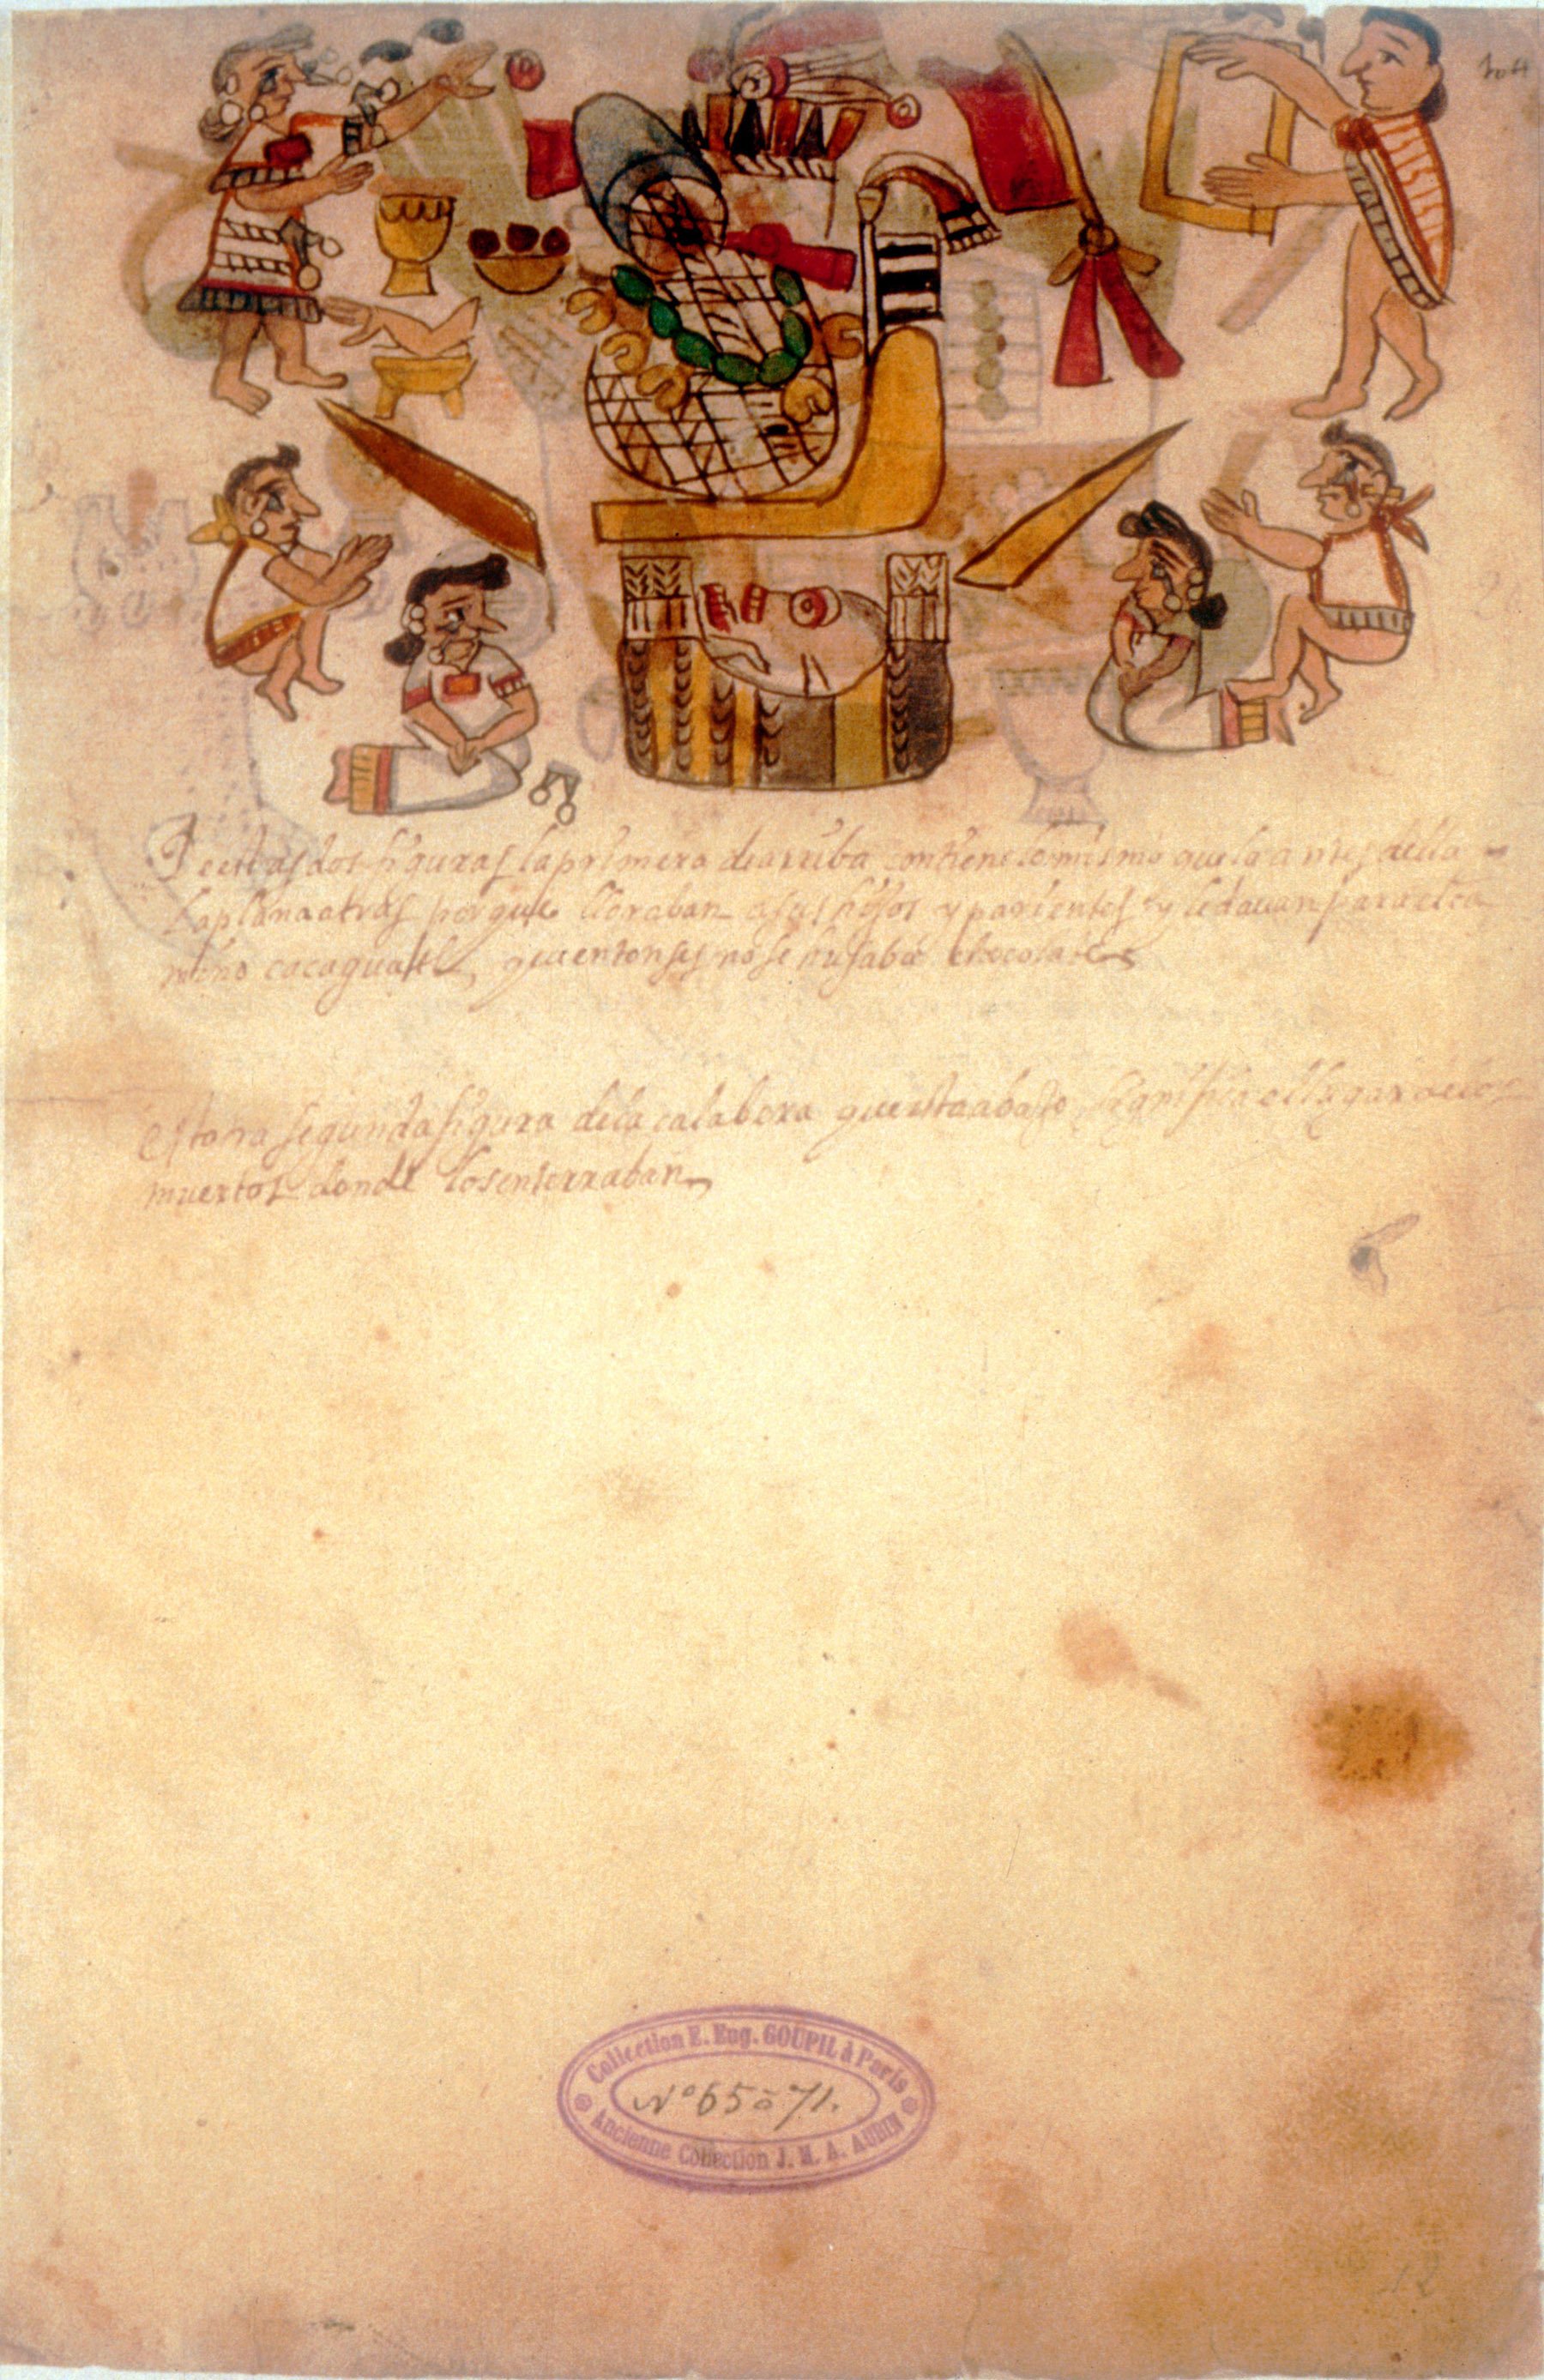 104
De estas dos figuras la primera de arriba contiene lo mismo que la antes della
la plana atras porque lloraban a sus hijos y parientes y le dauan para el ca
mino cacaguatl, que entonses no se husaba chocolate
esotra segunda figura de la calabera que esta abajo significa el lugar de los
muertos donde los enterraban
Collection E. Eug. GOUPIL à Paris
Nº 65 à 71.
Ancienne Collection J. M. A. AUBIN
12